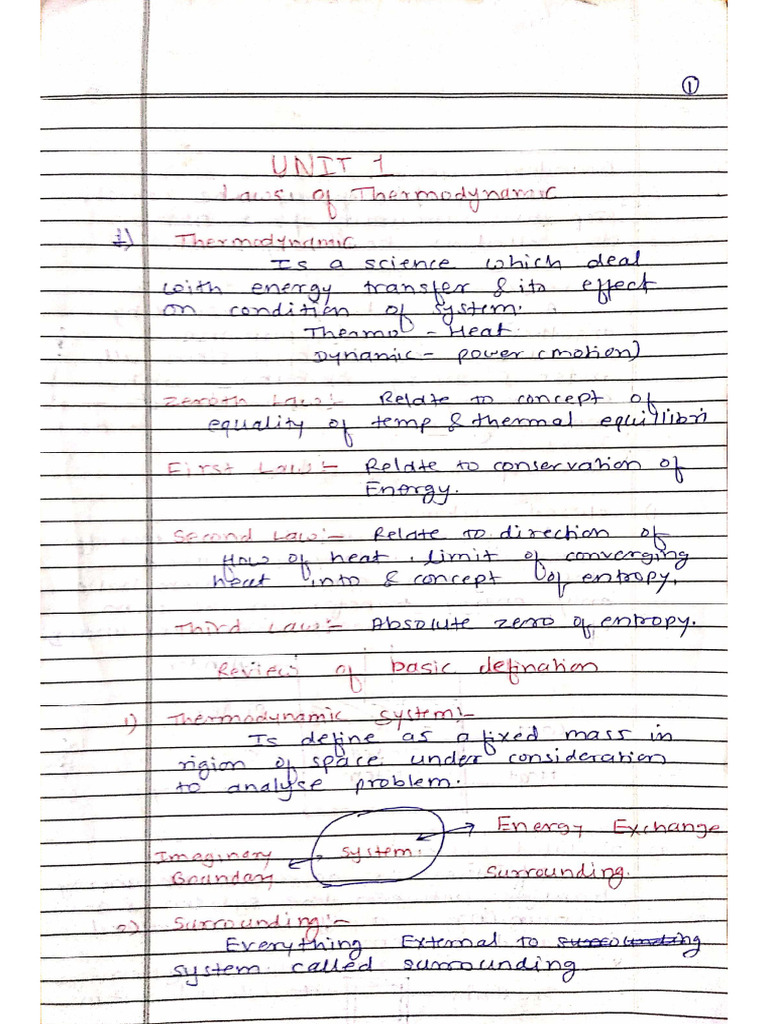 1
UNIT 1
Laws of Thermodynamic
1) Thermodynamic
Is a science which deal
with energy transfer & its effect
on condition of system.
Thermo - Heat
Dynamic - power (motion)
Zeroth Law:- Relate to concept of
equality of temp & thermal equillibri
First Law:- Relate to conservation of
Energy.
Second Law:- Relate to direction of
flow of heat, limit of converging
heat into & concept of entropy.
Third Law:- Absolute zero of entropy.
Review of basic defination
1) Thermodynamic System:-
Is define as a fixed mass in
rigion of space under consideration
to analyse problem.
Energy Exchange
Imaginary system.
Boundary Surrounding.
2) Surrounding:-
Everything External to surrounding
system called surrounding